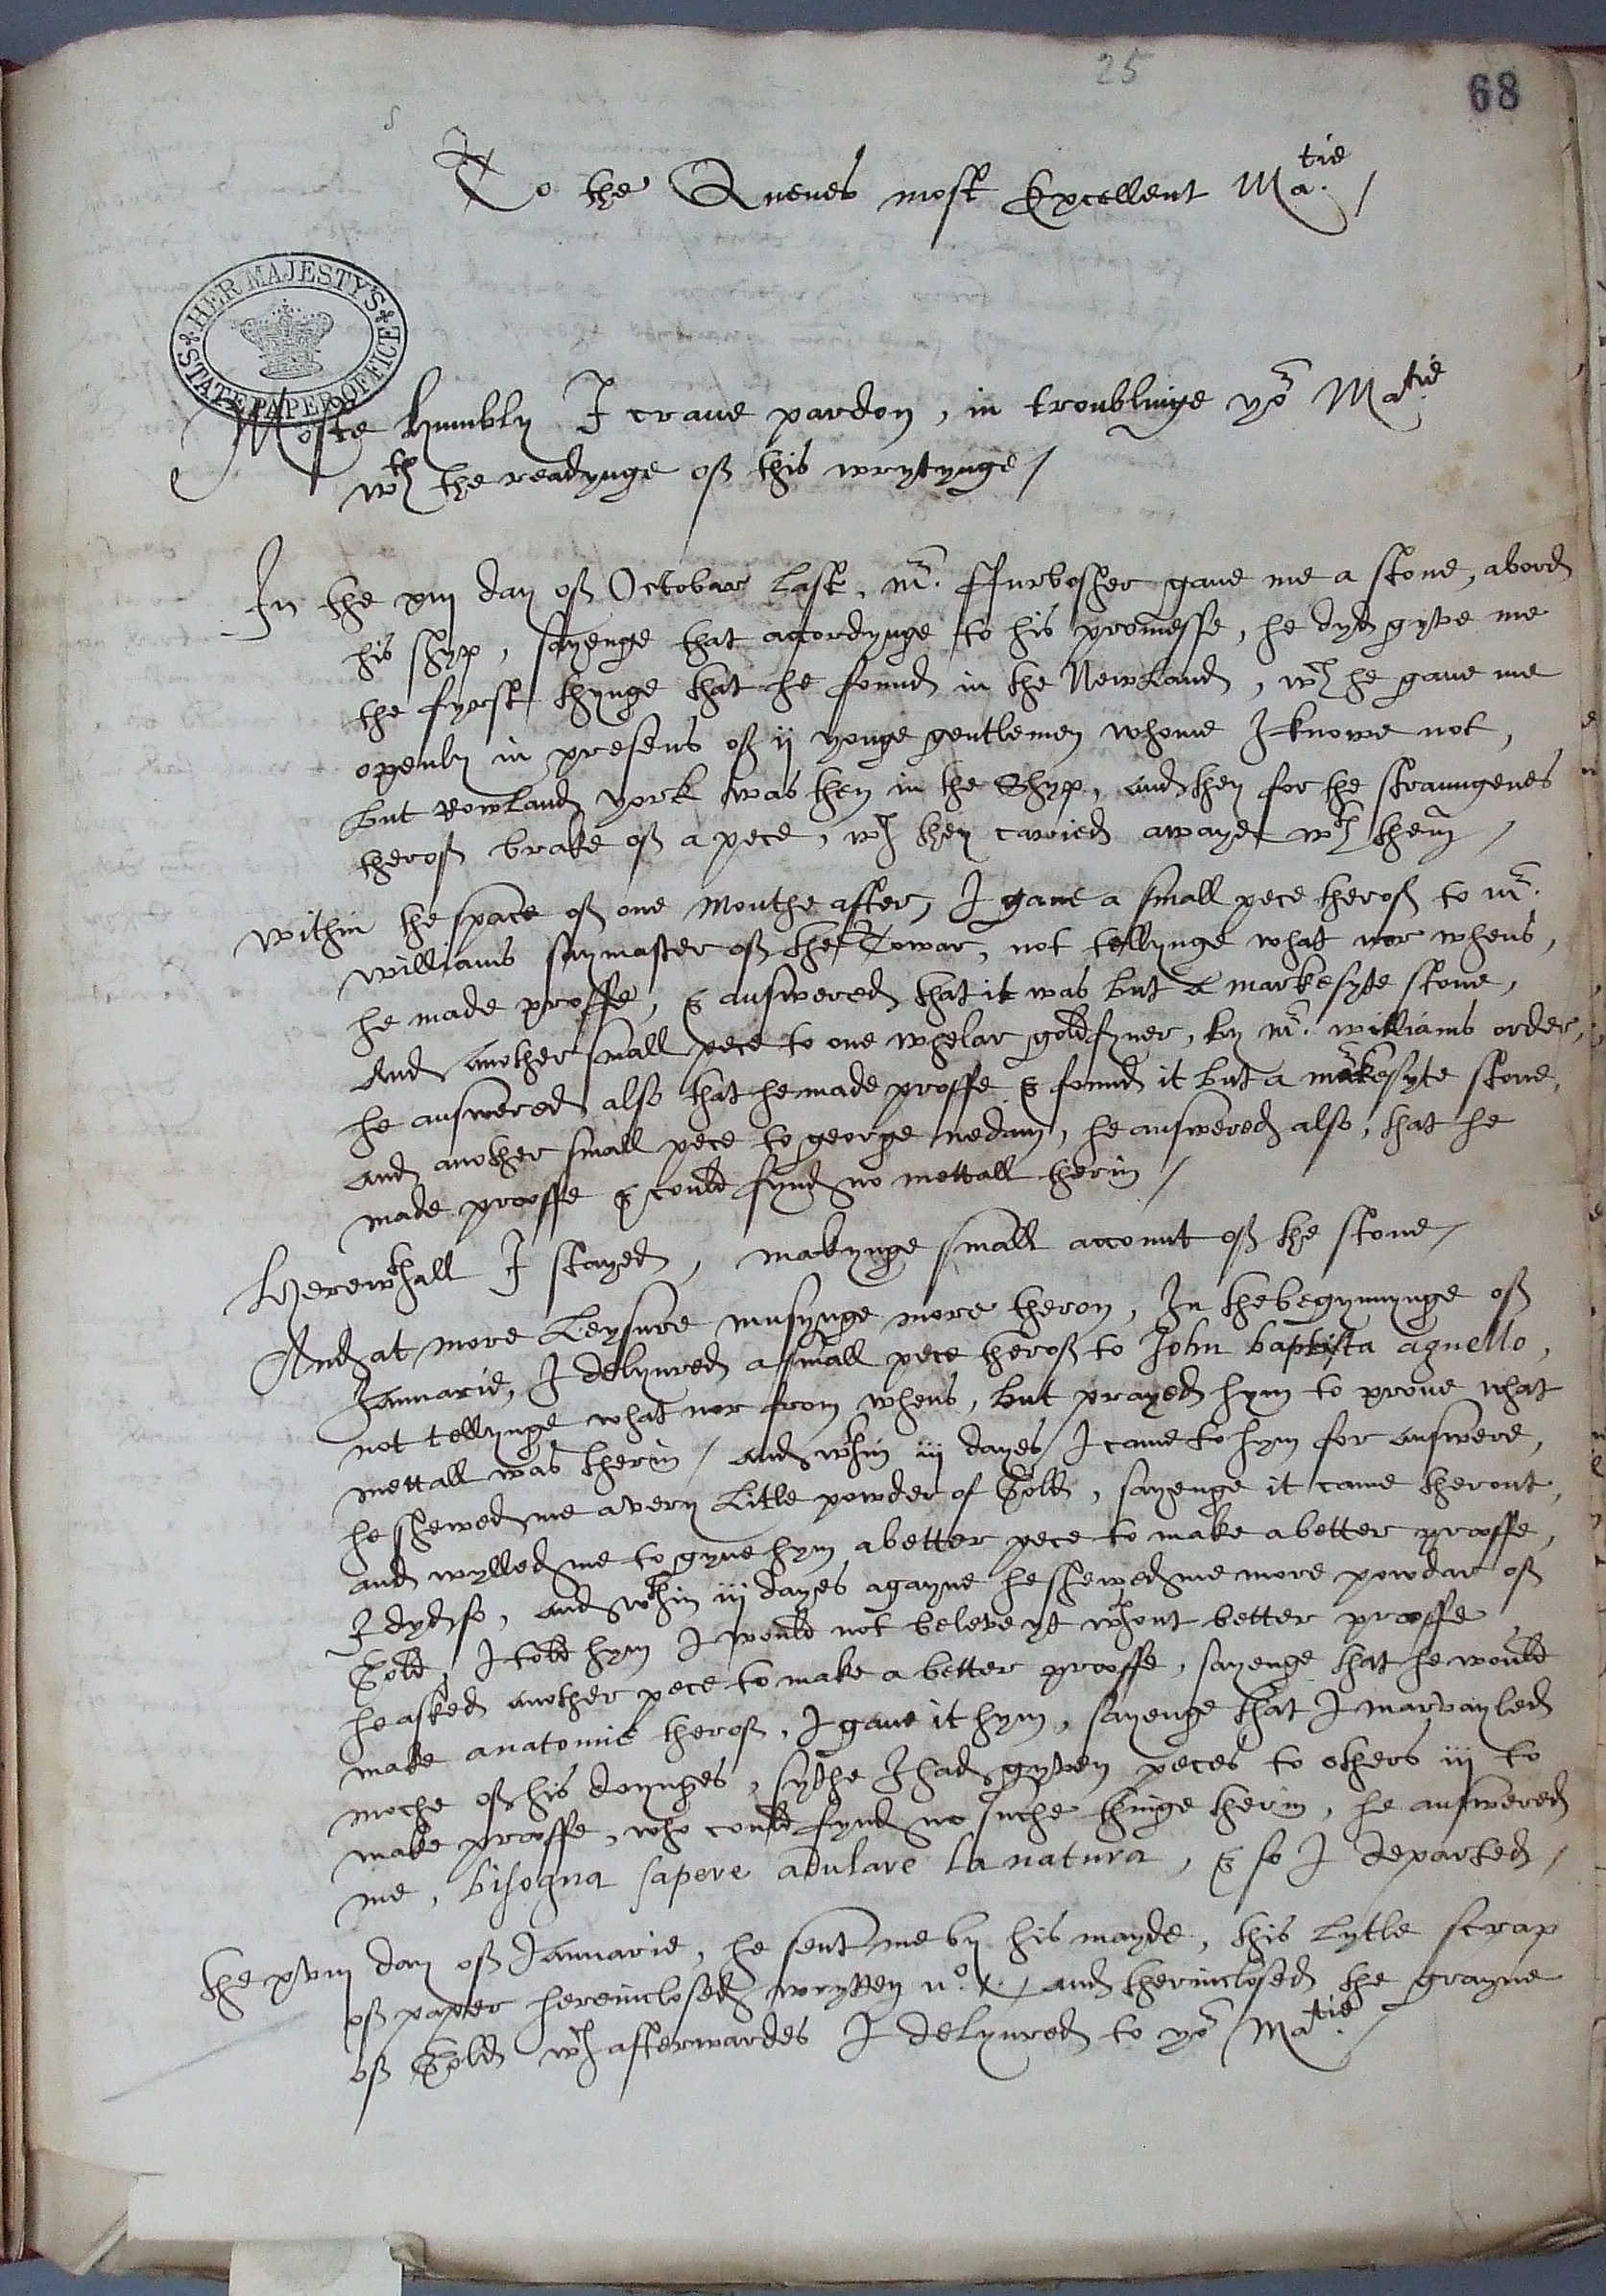 25
68
To the Quenes most Excellent Ma.tie /
HER MAJESTY'S
STATE PAPER OFFICE
Moste humbly I craue pardon, in troublinge yor Ma.tie
wth the readynge of this wrytynge /
In the xiij day of Octobar last, mr. ffurbosher gaue me a stone, abord
his shyp, sayenge that acordynge to his promesse, he dyd gyve me
the fyrst thynge that he found in the New Land, wch he gaue me
openly in presens of ij yonge gentlemen whome I knowe not,
but Rowland york was then in the Shyp, and they for the straungenes
therof brake of a pece, wch they carried awaye wth them /
Within the space of one Monthe after, I gaue a small pece therof to mr.
Williams saymaster of the Towar, not tellynge what nor whens,
he made prooffe, & answered that it was but a markesyte stone,
And another small pece to one whelar goldfyner, by mr. williams order,
he answered also that he made prooffe & found it but a markesyte stone,
and another small pece to george nedam, he answered also, that he
made prooffe & could fynd no mettall therin /
Herewthall I stayed, makynge small account of the stone /
And at more Leysure musynge more theron, In the begynnynge of
Januarie, I delyured a small pece therof to John baptista agnello,
not tellynge what nor from whens, but prayed hym to proue what
mettall was therin / and wthin iij dayes I came to hym for answere,
he shewed me a very Litle powder of Gold, sayenge it came therout,
and wylled me to gyue hym a better pece to make a better prooffe,
I dyd so, and wthin iij dayes agayne he shewed me more powdar of
Gold, I told hym I would not beleve yt wthout better prooffe
he asked another pece to make a better prooffe, sayenge that he would
make anatomie therof, I gaue it hym, sayenge that I marvayled
moche of his doynges, sythe I had gyven peces to others iij to
make prooffe, who could fynd no suche thinge therin, he answered
me, bisogna sapere adulare la natura, & so I departed /
the xviij day of Januarie, he sent me by his mayde, this Lytle scrap
of paper hereinclosed wrytten no. 1. / and therinclosed the grayne
of Gold wch afterwardes I delyured to yor Ma.tie /